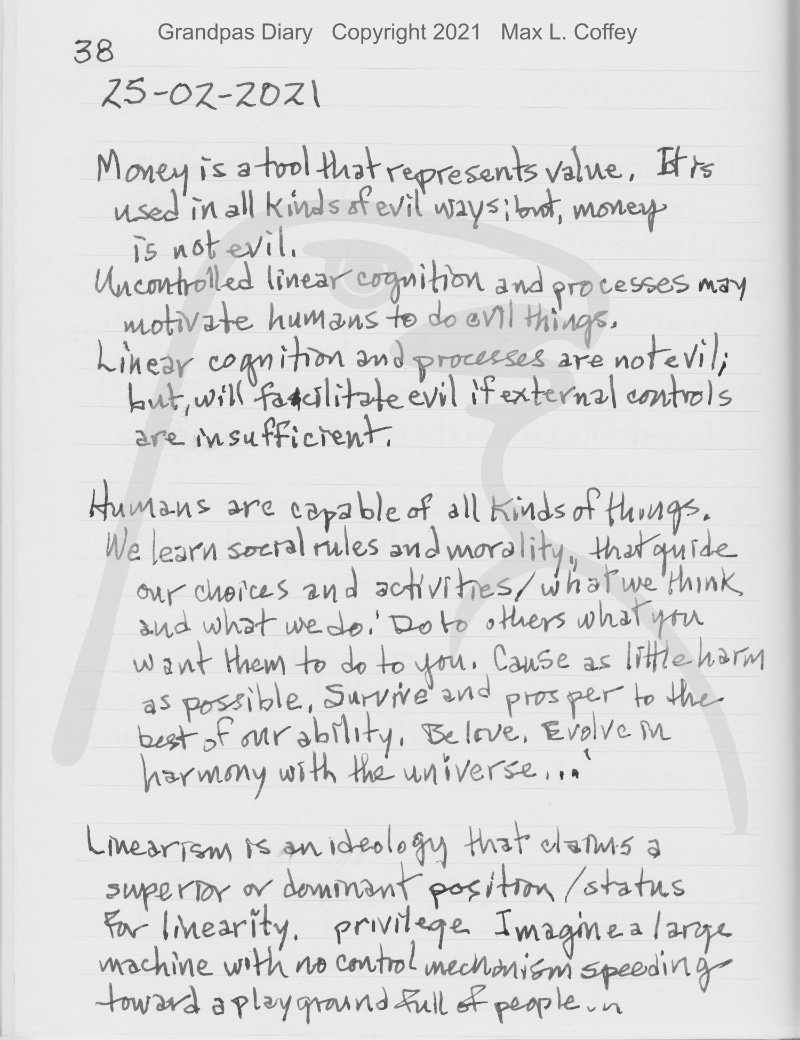 Grandpas Diary Copyright 2021 Max L. Coffey
38
25-02-2021
Money is a tool that represents value. It is
used in all kinds of evil ways; but, money
is not evil.
Uncontrolled linear cognition and processes may
motivate humans to do evil things.
Linear cognition and processes are not evil;
but, will facilitate evil if external controls
are insufficient.
Humans are capable of all kinds of things.
We learn social rules and morality, that guide
our choices and activities/what we think
and what we do. 'Do to others what you
want them to do to you. Cause as little harm
as possible. Survive and prosper to the
best of our ability. Be love. Evolve in
harmony with the universe...'
Linearism is an ideology that claims a
superior or dominant position/status
for linearity. privilege Imagine a large
machine with no control mechanism speeding
toward a playground full of people..